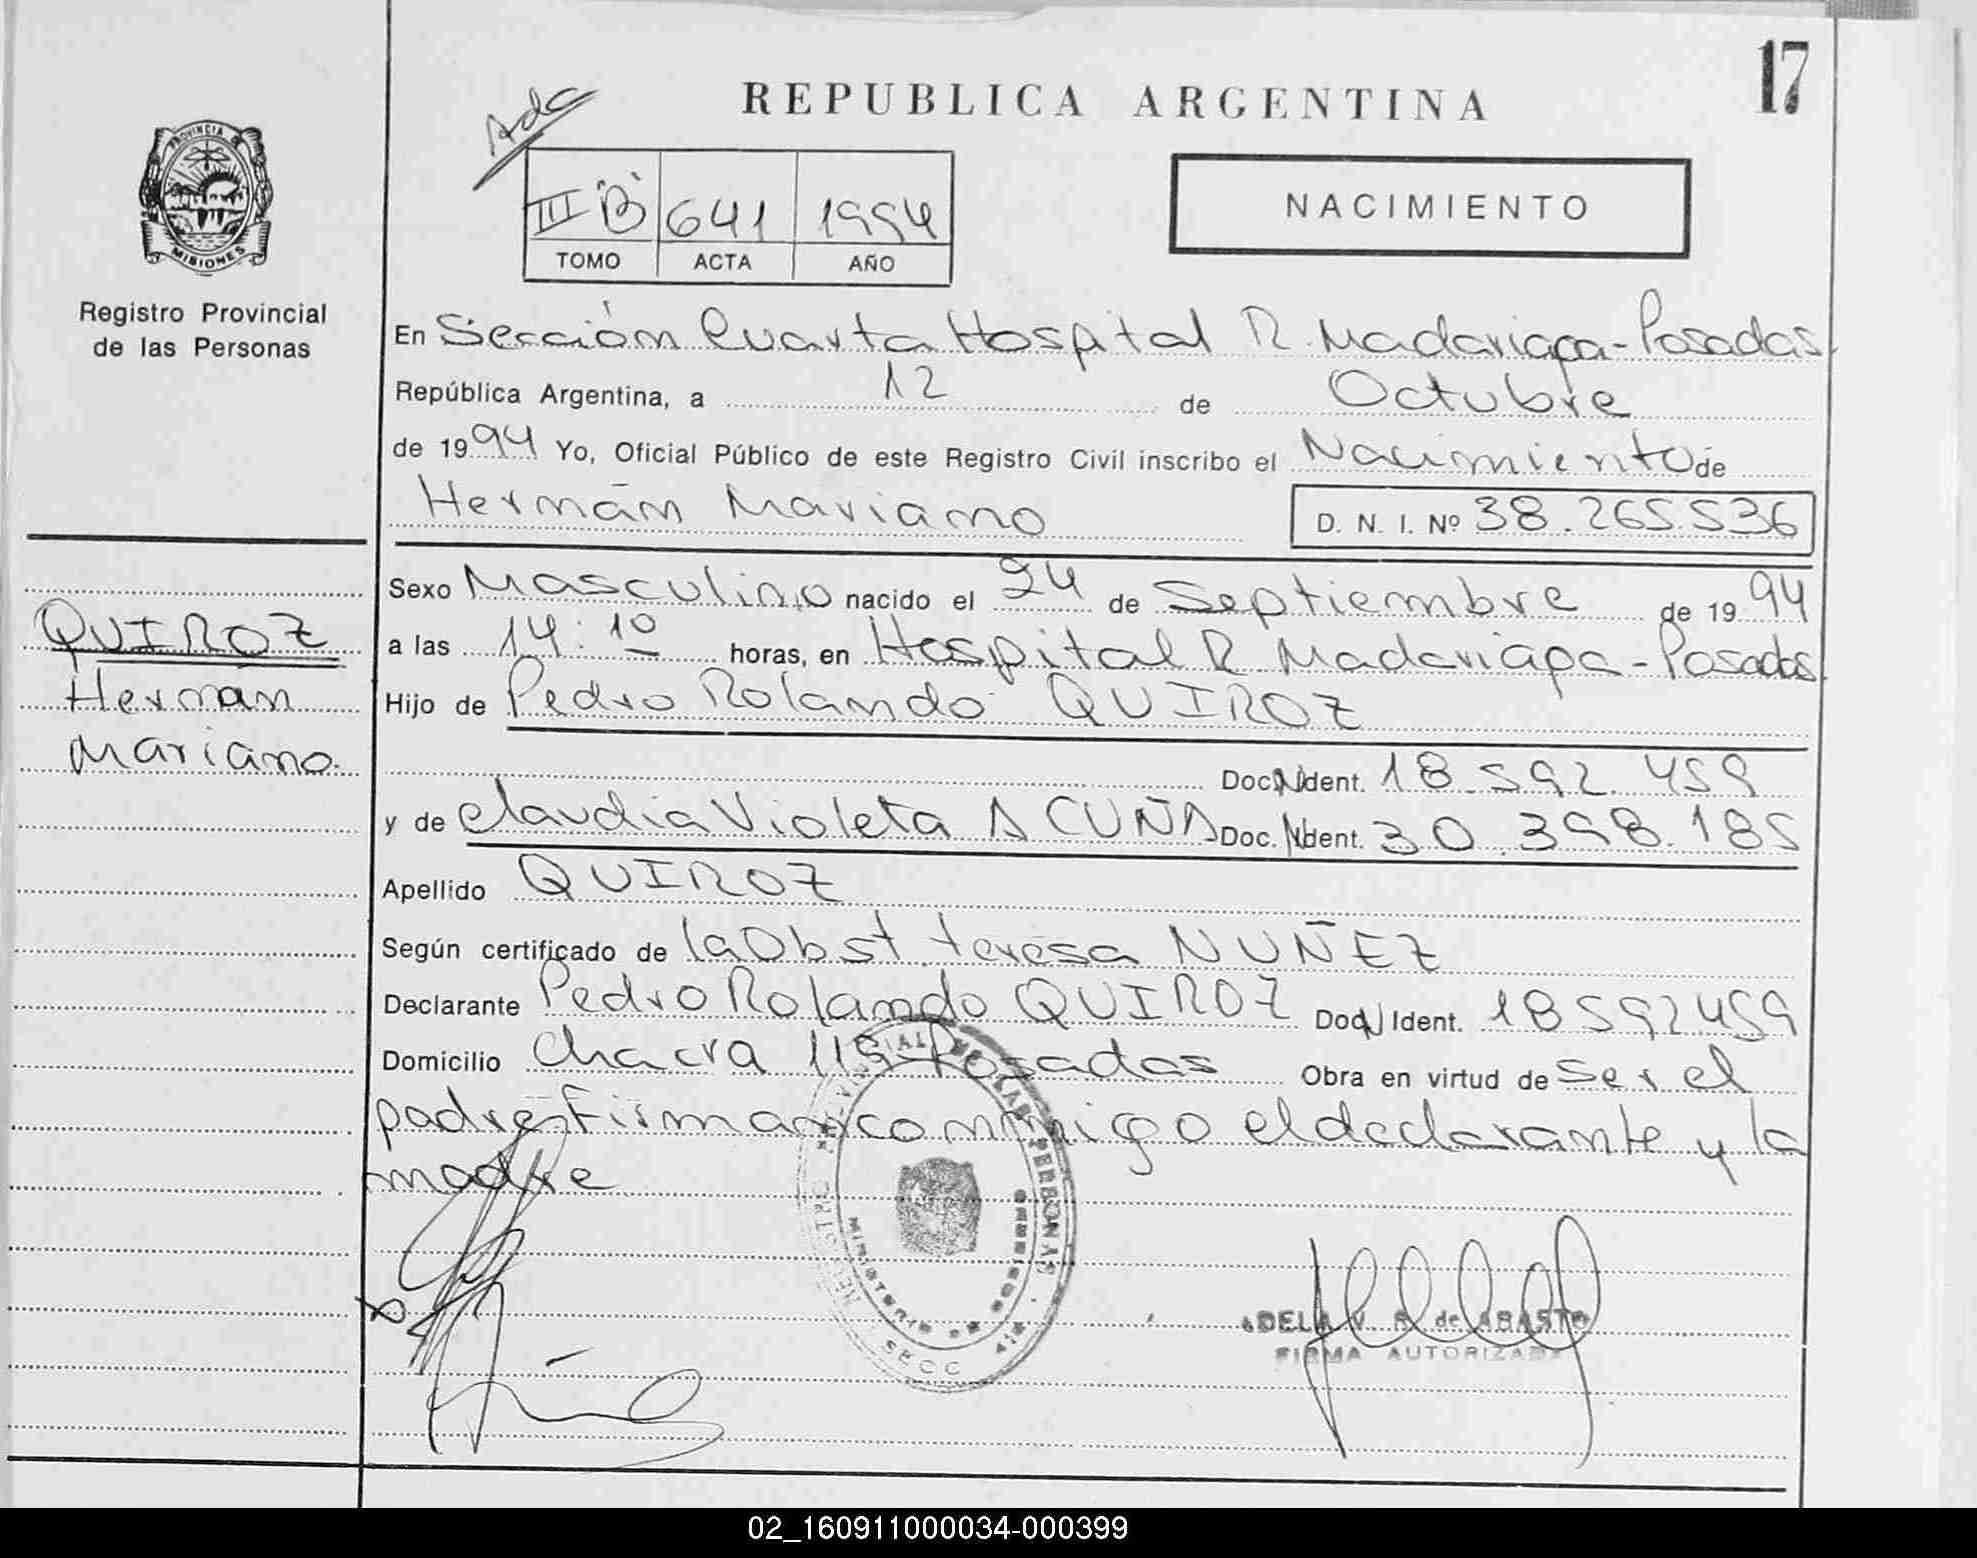 17
REPUBLICA ARGENTINA
Adc
PROVINCIA DE
MISIONES
Registro Provincial
de las Personas
III "B" 641 1994
TOMO ACTA AÑO
NACIMIENTO
En Sección Cuarta Hospital R. Madariaga - Posadas
República Argentina, a 12 de Octubre
de 1994 Yo, Oficial Público de este Registro Civil inscribo el Nacimiento de
Hernán Mariano D. N. I. Nº 38.265.536
Sexo Masculino nacido el 24 de Septiembre de 1994
a las 14:10 horas, en Hospital R Madariaga - Posadas
Hijo de Pedro Rolando QUIROZ
Doc. N Ident. 18.592.459
y de Claudia Violeta ACUÑA Doc. N Ident. 30.398.185
Apellido QUIROZ
Según certificado de la Obst. teresa NUÑEZ
Declarante Pedro Rolando QUIROZ Doc. N Ident. 18592459
Domicilio Chacra 119 - Posadas Obra en virtud de Ser el
padre Firman conmigo el declarante y la
madre
QUIROZ
Hernán
Mariano.
PERSONAS
MINISTERIO
SECC
ADELA V. R. de ABASTO
FIRMA AUTORIZADA
02_160911000034-000399